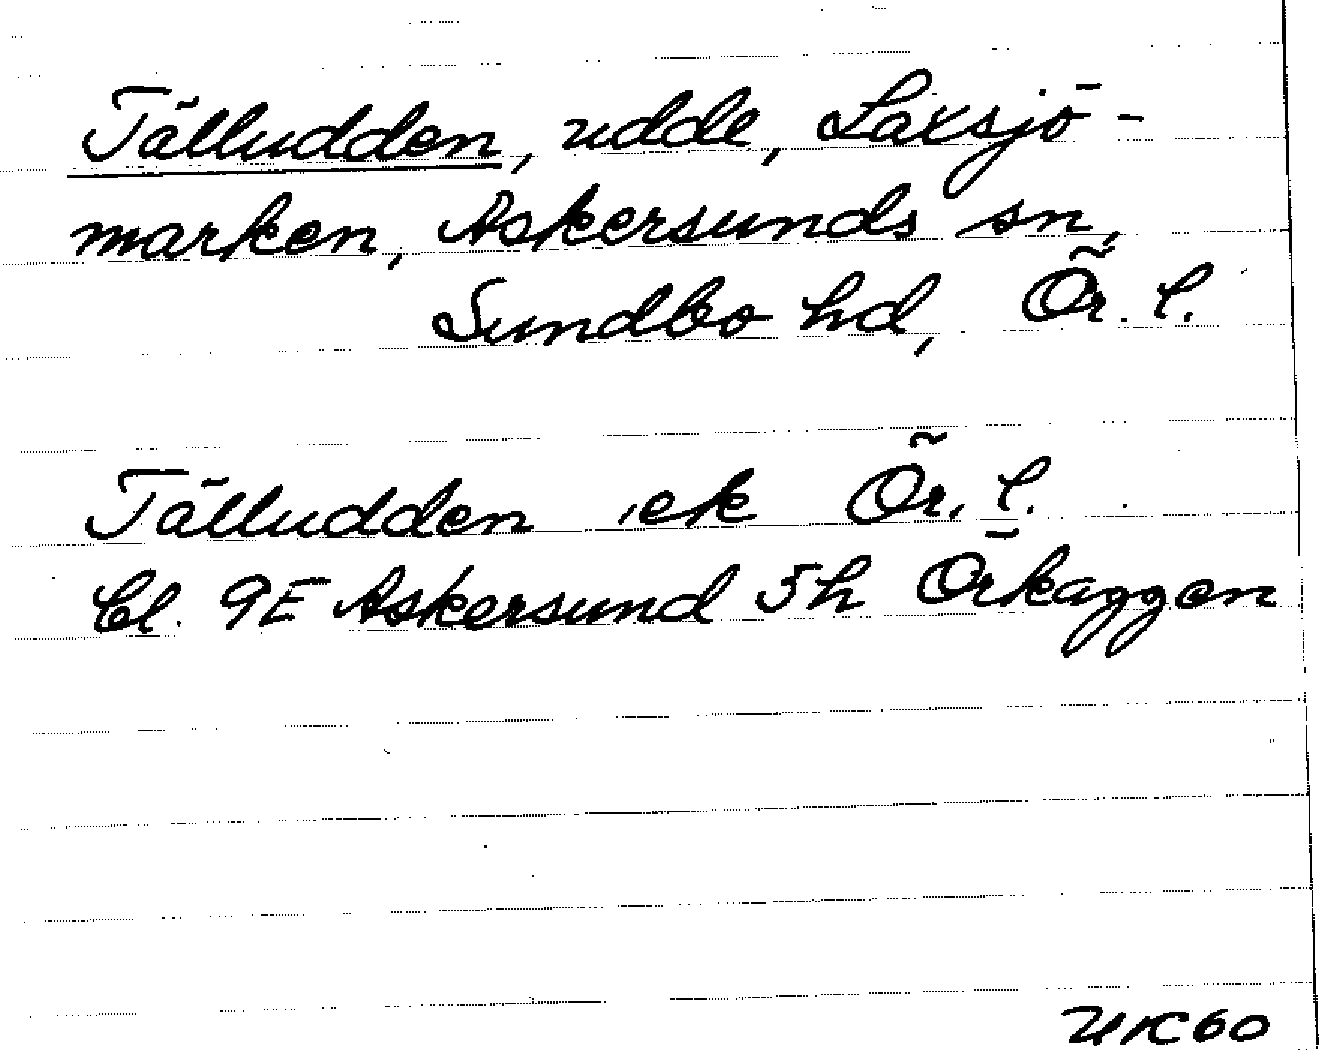 Tälludden, udde, Laxsjö-
marken, Askersunds sn,
Sundbo hd, Ör. l.
Tälludden ek Ör. l.
Bl. 9E Askersund 5h Örkaggen
UK60